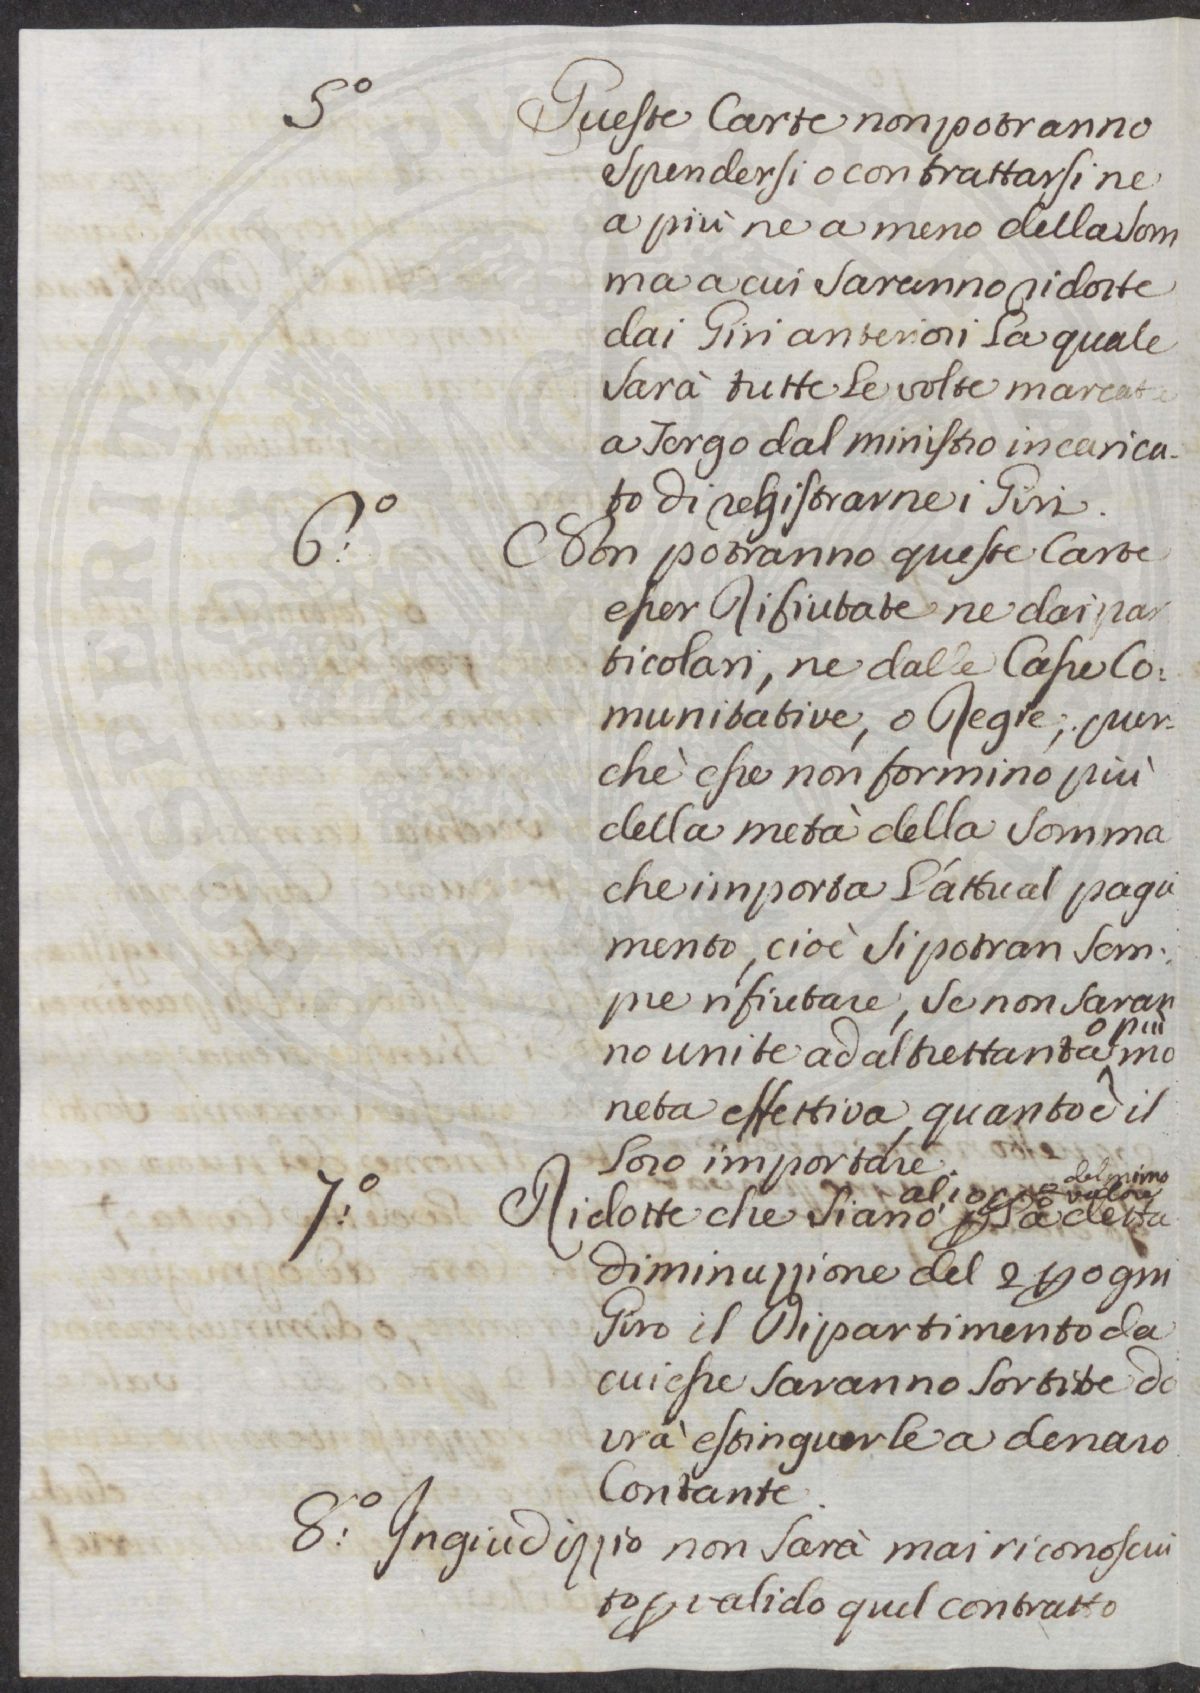 5° Queste Carte non potranno
spendersi o contrattarsi ne
a più ne a meno della Som
ma a cui saranno ridotte
dai Giri anteriori La quale
sarà tutte Le volte marcata
a Tergo dal ministro incarica-
to di registrarne i Giri.
6°: Non potranno queste Carte
esser Rifiutate ne dai par
ticolari, ne dalle Casse Co:
munitative, o Regie, pur-
chè esse non formino più
della metà della Somma
che importa L'attual paga
mento, cioè si potran sem:
pre rifiutare, se non saran
o più
no unite ad altrettanta mo
neta effettiva, quanto è il
Loro importare.
del primo
al 10 valore
7°: Ridotte che siano p La detta
diminuzzione del 2 p ogni
Giro il Dipartimento da
cui esse saranno sortite do
vrà estinguerle a denaro
Contante.
8°: In giudizzio non sarà mai riconosciu
to p valido quel contratto